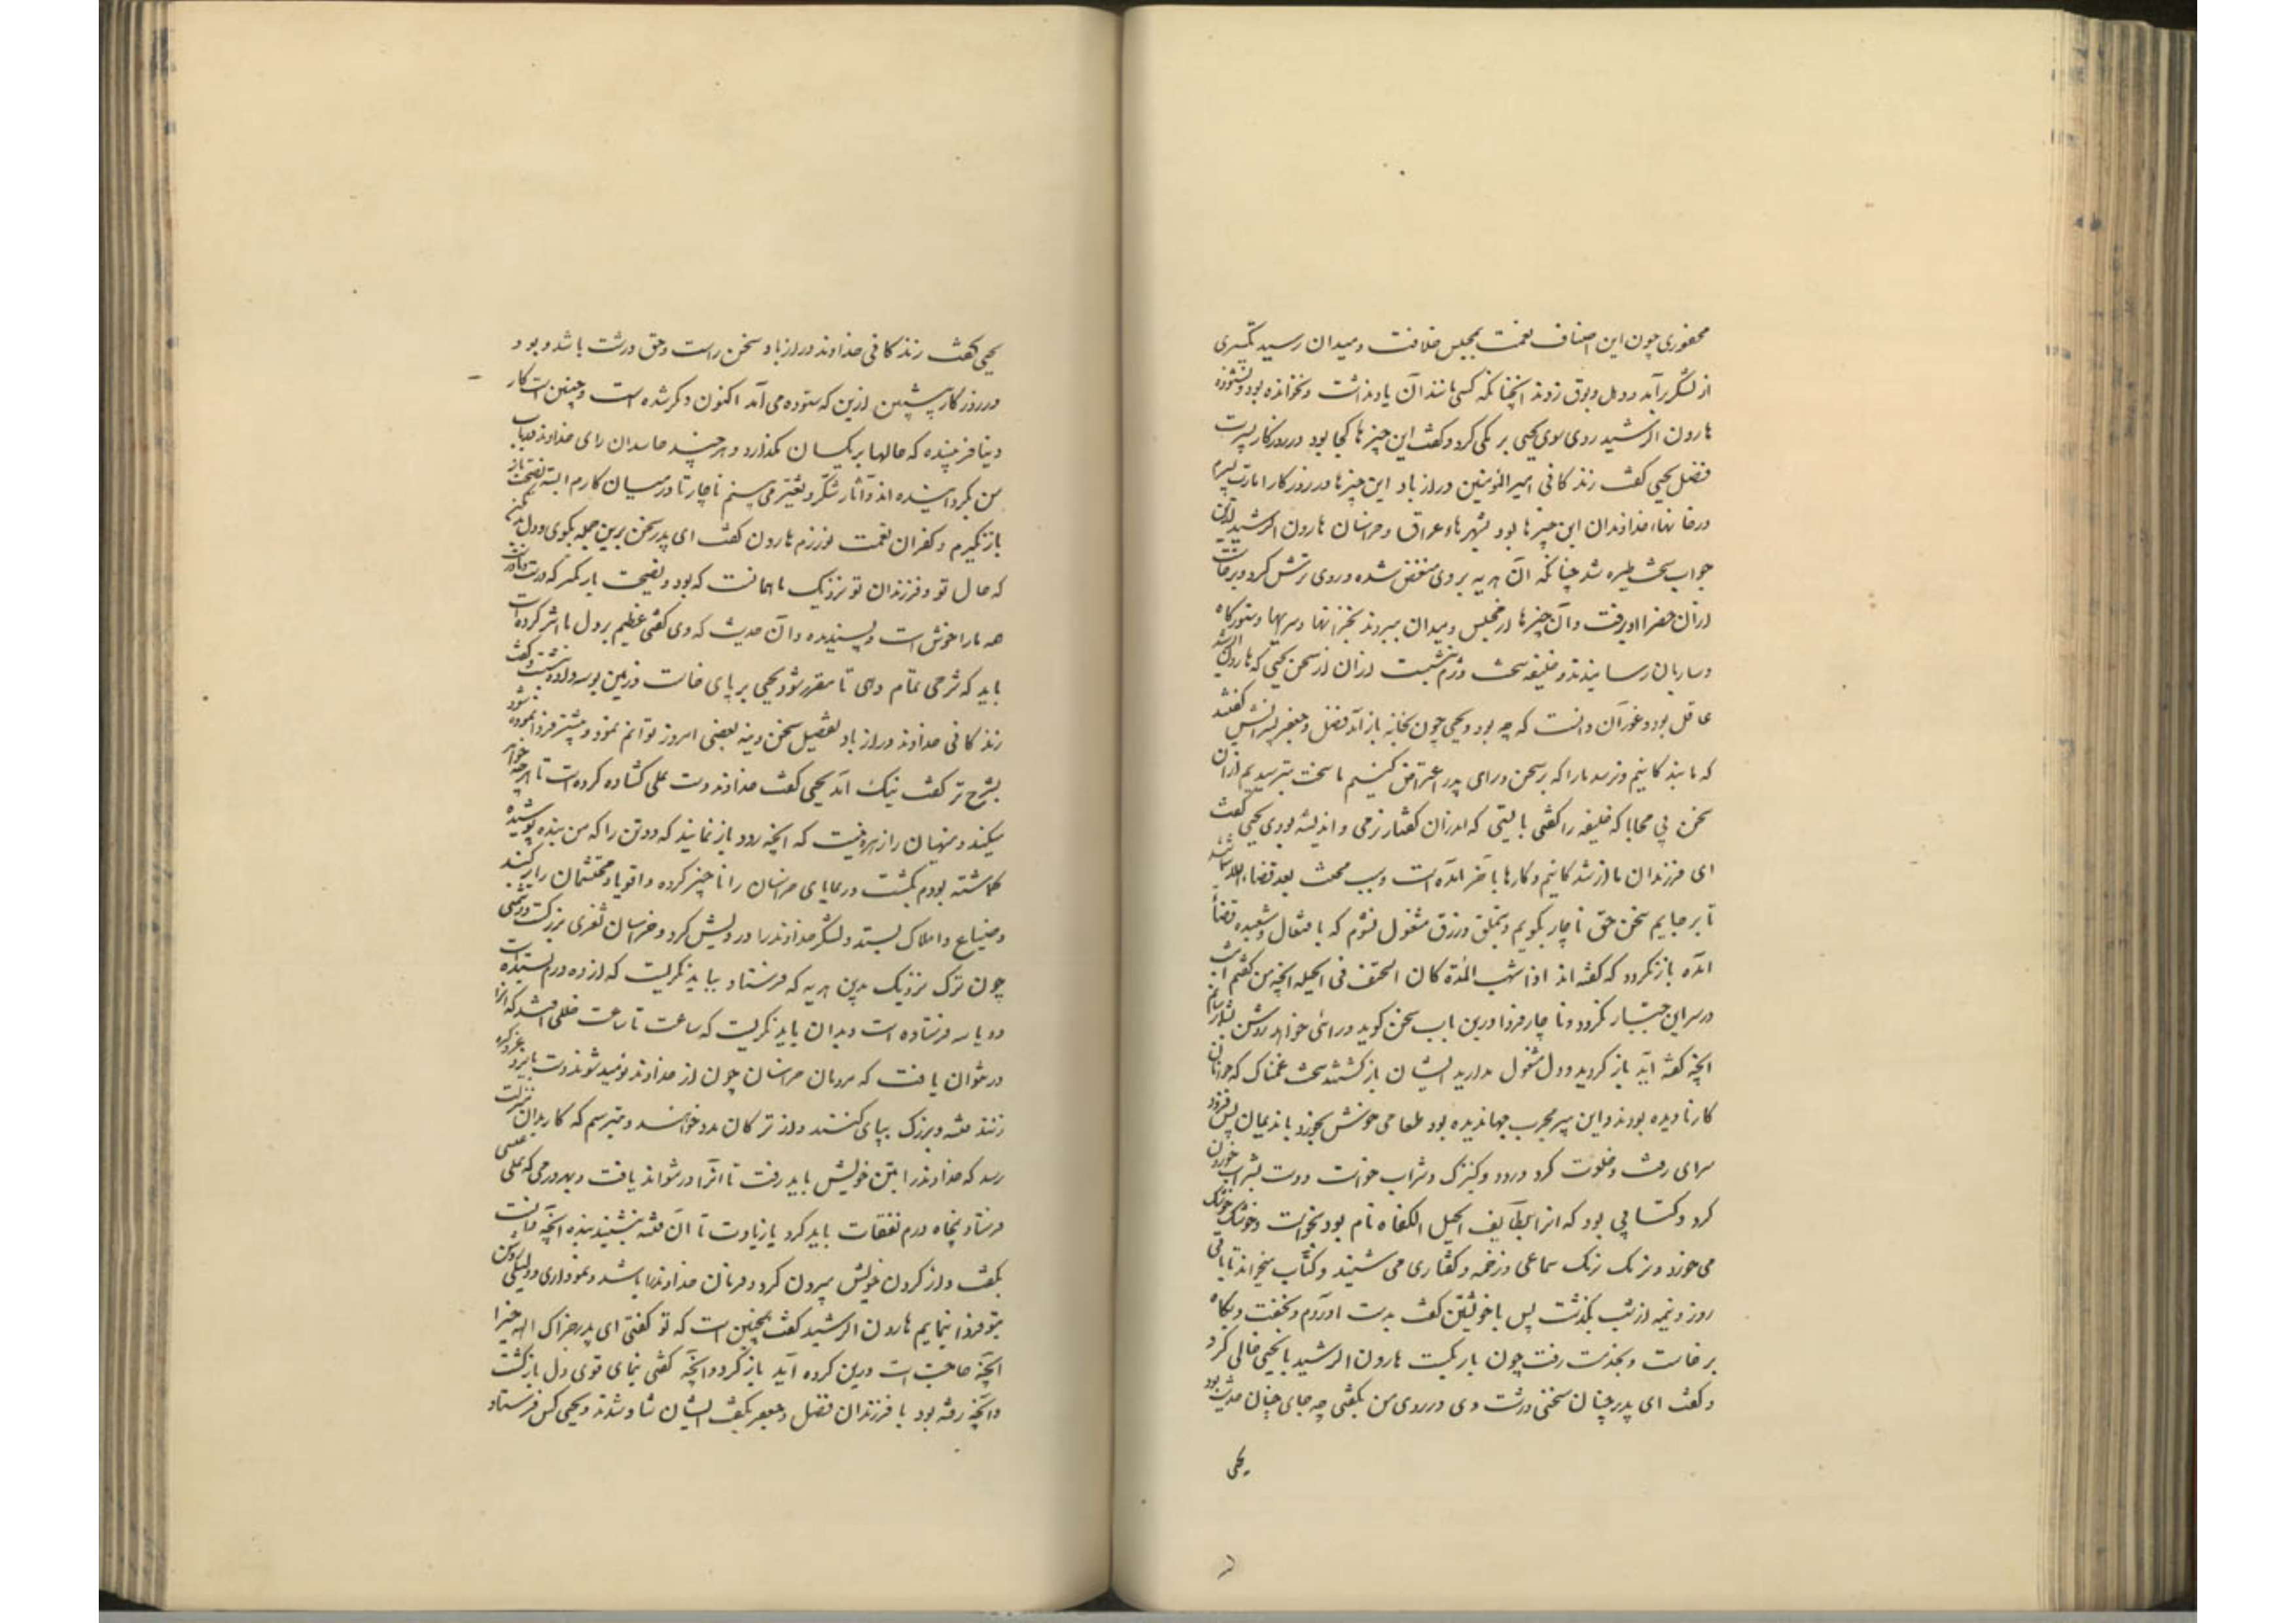 محفوری چون این اصناف نعمت بمجلس خلافت و میدان رسید تکبیری
از لشکر برآمد و دهل و بوق زدند آنچنانکه کسی مانند آن یاد نداشت و نخوانده بود و نشنوده
هارون الرشید روی سوی یحیی برمکی کرد و گفت این چیزها کجا بود در روزگار پسرت
فضل یحیی گفت زندگانی امیر المؤمنین دراز باد این چیزها در روزگار امارت پسرم
در خانهاء خداوندان این چیزها بود بشهرهاء عراق و خراسان هارون الرشید ازین
جواب سخت طیره شد چنانکه آن هدیه بر وی منغض شد و روی ترش کرد و برخاست
ازان خضرا و برفت و آن چیزها از مجلس و میدان ببردند بخزانها و سرایها و ستورگاه
و ساربان رسانیدند و خلیفه سخت دژم بنشست ازان از سخن یحیی که هارون الرشید
عاقل بود و غور آن دانست که چه بود و یحیی چون بخانه باز آمد فضل و جعفر پسرانش گفتند
که ما بندگانیم و نرسد ما را که بر سخن و رای پدر اعتراض کنیم ما سخت بترسیدیم ازان
سخن بی محابا که خلیفه را گفتی بایستی که اندران گفتار نرمی و اندیشه بودی یحیی گفت
ای فرزندان ما از شدگانیم و کارها بآخر آمده است و سبب محنت بعد قضاء الله شمائید
تا بر جایم سخن حق ناچار بگویم و بتملق و زرق مشغول نشوم که بافتعال و شعبده قضا
آمده باز نگردد که گفته اند اذا انتهت المدة کان الحتف فی الحیلة آنچه من گفتم امشب
در سر این جبار بگردد و ناچار فردا درین باب سخن گوید و رائی خواهد روشن بشما رسانم
آنچه گفته آید باز گردید و دل مشغول مدارید ایشان باز گشتند سخت غمناک که جوانان
کار نادیده بودند و این پیر مجرب جهاندیده بود طعامی خوش بخورد با ندیمان پس فرود
سرای رفت و خلوت کرد و رود و کنیزک و شراب خواست و دست بشراب خوردن
کرد و کتابی بود که آنرا لطایف الحیل الکفاة نام بود بخواست و خوشک خوشک
می خورد و نرمک نرمک سماعی و زخمه و گفتاری می شنید و کتاب میخواند تا باقی
روز و نیمه از شب بگذشت پس با خویشتن گفت بدست آوردم و بخفت و پگاه
برخاست و بخدمت رفت چون بار بگسست هارون الرشید با یحیی خالی کرد
و گفت ای پدر چنان سخنی درشت دی در روی من بگفتی چه جای چنان حدیث بود
یحیی
یحیی گفت زندگانی خداوند دراز باد سخن راست و حق درشت باشد و بود
در روزگار پیشین ازین که ستوده می آمد اکنون دگر شده است و چنین است کار
دنیا فریبنده که حالها بر یکسان نگذارد و هر چند حاسدان رای خداوند در باب
من بگردانیده اند و آثار تنکر و تغیر می بینم ناچار تا در میان کارم البته نصیحت باز
باز نگیرم و کفران نعمت نورزم هارون گفت ای پدر سخن برین جمله مگوی و دل بد مکن
که حال تو و فرزندان تو نزدیک ما همانست که بود و نصیحت باز مگیر که درست و نادرست
همه ما را خوش است و پسندیده و آن حدیث که دی گفتی عظیم بر دل ما اثر کرده است
باید که شرحی تمام دهی تا مقرر شود یحیی بر پای خاست و زمین بوسه داد و بنشست و گفت
زندگانی خداوند دراز باد تفصیل سخن دینه بعضی امروز توانم نمود و بیشتر فردا نموده شود
بشرح تر گفت نیک آمد یحیی گفت خداوند دست علی گشاده کرده است تا هر چه خواهد
میکند و منهیان را زهره نیست که آنچه رود باز نمایند که دو تن را که من بنده پوشیده
گماشته بودم بکشت و رعایای خراسان را ناچیز کرده و اقویا و محتشمان را برکند
و ضیاع و املاک بستد و لشکر خداوند را درویش کرد و خراسان ثغری بزرگست و دشمنی
چون ترک نزدیک بدین هدیه که فرستاد نباید نگریست که از ده درم بستده است
دو یا سه فرستاده است و بدان باید نگریست که ساعت تا ساعت خللی افتد که آنرا
در نتوان یافت که مردمان خراسان چون از خداوند نومید شوند دست بایزد عز ذکره
زنند فتنه و بزرگ بپای کنند و از ترکان مدد خواهند و بترسم که کار بدان منزلت
رسد که خداوند را بتن خویش باید رفت تا آنرا در تواند یافت و بهر درمی که علی عیسی
فرستاد پنجاه درم نفقات باید کرد یا زیادت تا آن فتنه بنشیند بنده آنچه دانست
بگفت و از گردن خویش بیرون کرد و فرمان خداوند را باشد و نموداری و دلیلی روشن
بتو فردا نمایم هارون الرشید گفت همچنین است که تو گفتی ای پدر جزاک الله خیرا
آنچه حاجت است درین کرده آید باز گرد و آنچه گفتی بنمای قوی دل بازگشت
و آنچه رفته بود با فرزندان فضل و جعفر بگفت ایشان شاد شدند و یحیی کس فرستاد